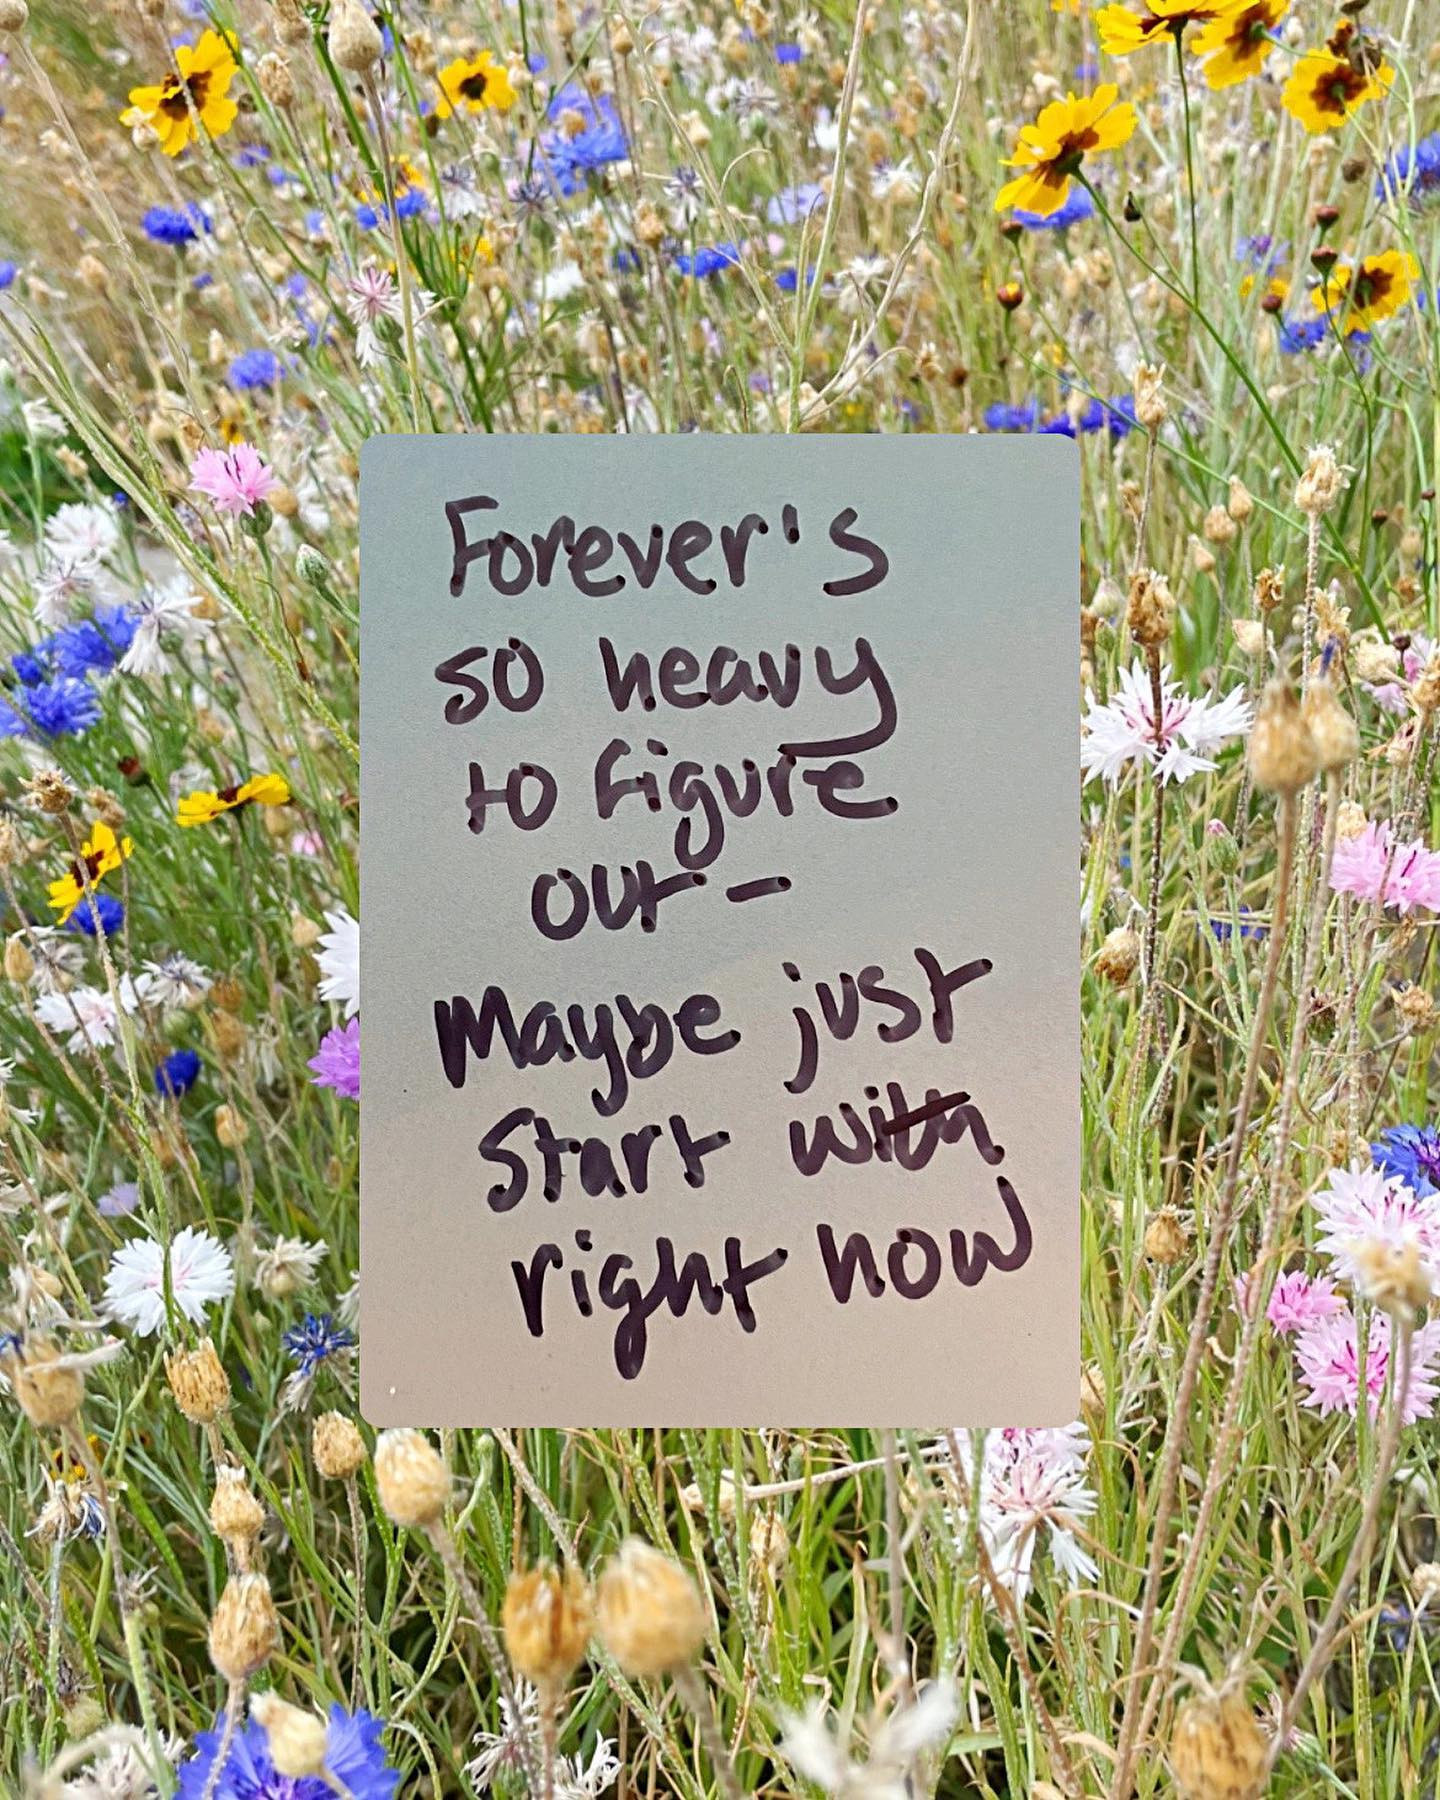 Forever's
so heavy
to figure
out -
Maybe just
Start with
right now